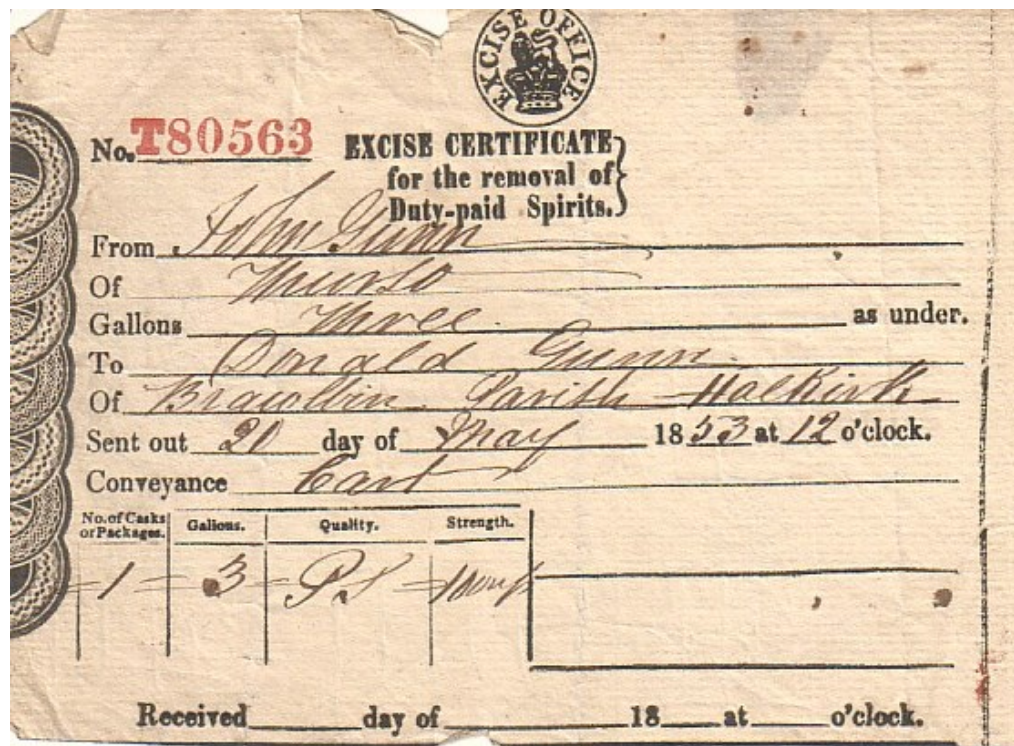 EXCISE OFFICE
No. T80563
EXCISE CERTIFICATE
for the removal of
Duty-paid Spirits.
From John Gunn
Of Thurso
Gallons Three as under.
To Donald Gunn
Of Brawlbin Parish Halkirk
Sent out 20 day of May 1853 at 12 o'clock.
Conveyance Cart
No. of Casks or Packages. Gallons. Quality. Strength.
1 3 P.S
Received day of 18 at o'clock.